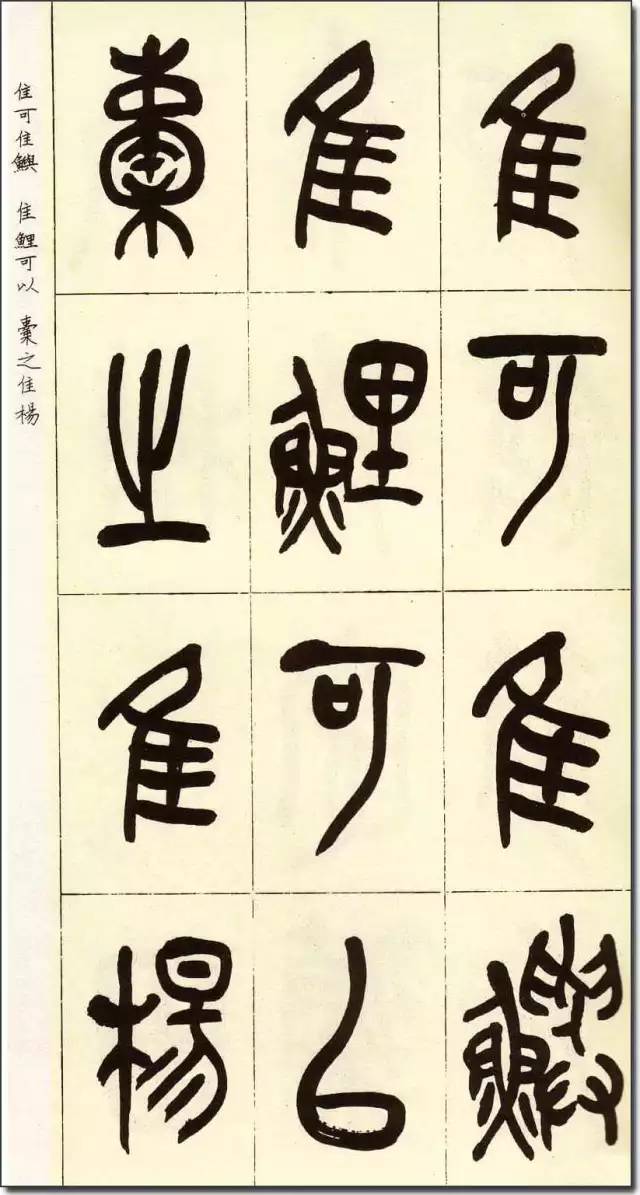 隹可隹鱮
隹鯉可㠯
橐之隹楊
隹可隹鱮 隹鯉可以 橐之隹楊